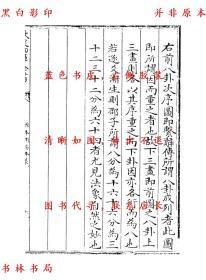 黑白影印 並非原本
右前八卦次序圖即繫辭傳所謂八卦成列者此圖
即所謂因而重之者也故下三畫即前圖之八卦上
三畫則各以其序重之而下卦因亦各衍而為八也
若逐爻漸生則邵子所謂八分為十六十六分為三
十二三十二分為六十四者尤見法象自然之妙也
清晰如图
书林书局